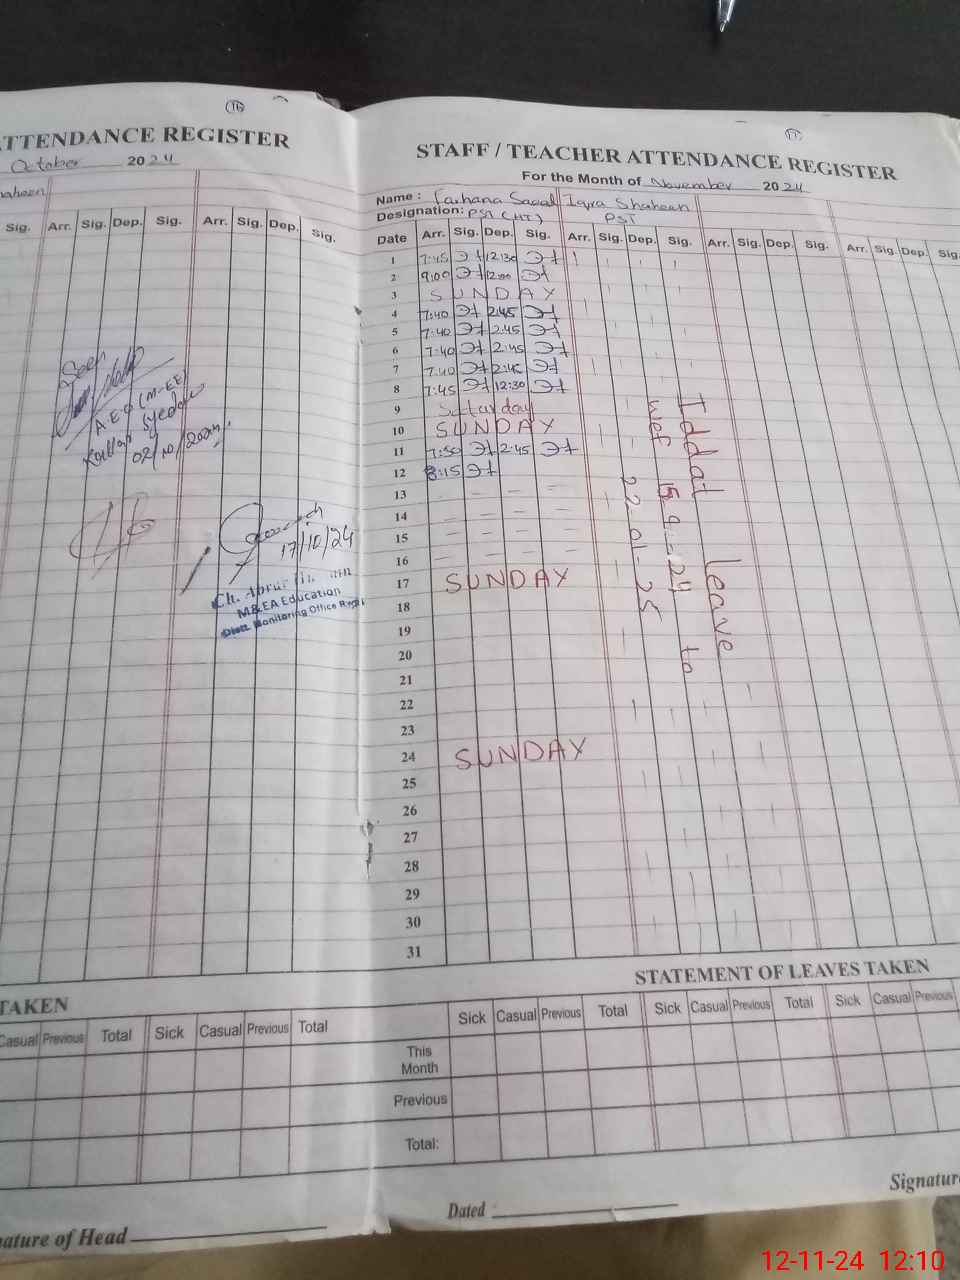 16
ATTENDANCE REGISTER
October 2024
Shaheen
Sig. Arr. Sig. Dep. Sig. Arr. Sig. Dep. Sig.
Seen
A.E.O (M-EE)
Kallar Syedan
02/10/2024
17/10/24
M&EA Education
Distt. Monitoring Office
TAKEN
Casual Previous Total Sick Casual Previous Total
Signature of Head
17
STAFF / TEACHER ATTENDANCE REGISTER
For the Month of November 2024
Name : Farhana Iqra Shaheen
Designation: PST (HT) PST
Date Arr. Sig. Dep. Sig. Arr. Sig. Dep. Sig. Arr. Sig. Dep. Sig. Arr. Sig. Dep. Sig.
1 7:45 12:30
2 9:00 12:00
3 SUNDAY
4 7:40 2:45
5 7:40 2:45
6 7:40 2:45
7 7:40 2:45
8 7:45 12:30
9 Saturday
10 SUNDAY
11 7:50 2:45
12 8:15
13
14
15
16
17 SUNDAY
18
19
20
21
22
23
24 SUNDAY
25
26
27
28
29
30
31
Iddat leave
wef 15 9 24 to
22 01-25
STATEMENT OF LEAVES TAKEN
Sick Casual Previous Total Sick Casual Previous Total Sick Casual Previous
This Month
Previous
Total:
Dated
Signature
12-11-24 12:10